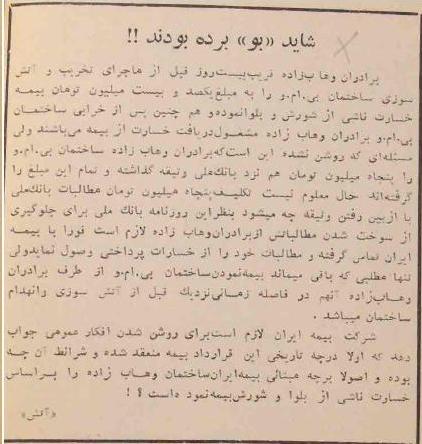 شاید «بو» برده بودند !!
برادران وهاب‌زاده قریب‌بیست‌روز قبل از ماجرای تخریب و آتش
سوزی ساختمان بی.ام.و را به مبلغ‌یکصد و بیست میلیون تومان بیمه
خسارت ناشی از شورش و بلوانموده‌و هم چنین پس از خرابی ساختمان
بی.ام.و برادران وهاب زاده مشغول‌دریافت خسارت از بیمه می‌باشند ولی
مسئله‌ای که روشن نشده این است‌که‌برادران وهاب زاده ساختمان بی.ام.و
را بپنجاه میلیون هم نزد بانک‌ملی وثیقه گذاشته و تمام این مبلغ را
گرفته‌اند حال معلوم نیست تکلیف‌پنجاه میلیون تومان مطالبات بانک‌ملی
با ازبین رفتن وثیقه چه میشود بنظراین روزنامه بانک ملی برای جلوگیری
از سوخت شدن مطالباتش ازبرادران‌وهاب زاده لازم است فورا با بیمه
ایران تماس گرفته و مطالبات خود را از خسارات پرداختی وصول نمایدولی
تنها مطلبی که باقی میماند بیمه‌نمودن‌ساختمان بی.ام.و از طرف برادران
وهاب‌زاده آنهم در فاصله زمانی‌نزدیک قبل از آتش سوزی وانهدام
ساختمان میباشد .
شرکت بیمه ایران لازم است‌برای روشن شدن افکار عمومی جواب
دهد که اولا درچه تاریخی این قرارداد بیمه منعقد شده و شرائط آن چه
بوده و اصولا برچه مبنائی بیمه‌ایران‌ساختمان وهاب زاده را براساس
خسارت ناشی از بلوا و شورش‌بیمه‌نموده‌است ؟ !
«آتش»